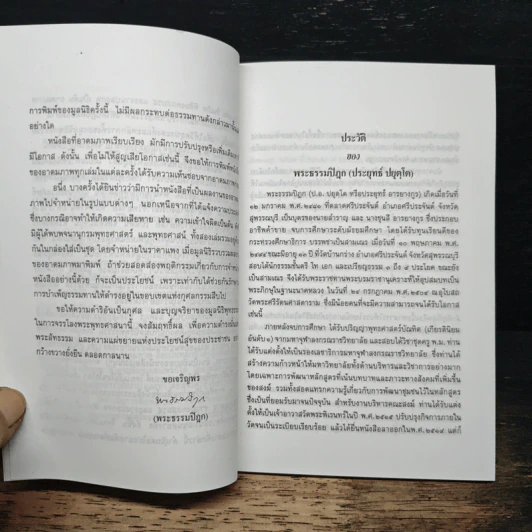 การพิมพ์ของมูลนิธิครั้งนี้ ไม่มีผลกระทบต่อธรรมทานดังกล่าวมานั้นแต่
อย่างใด
หนังสือที่อาตมภาพเรียบเรียง มักมีการปรับปรุงหรือเพิ่มเติมเมื่อ
มีโอกาส ดังนั้น เพื่อไม่ให้สูญเสียโอกาสเช่นนี้ จึงขอให้การพิมพ์หนังสือ
ของอาตมภาพทุกเล่มในแต่ละครั้งได้รับความเห็นชอบจากอาตมภาพ
อนึ่ง บางครั้งได้ยินข่าวว่ามีการนำหนังสือที่เป็นผลงานของอาตม
ภาพไปจำหน่ายในรูปแบบต่างๆ นอกเหนือจากที่ได้แจ้งความประสงค์
ซึ่งบางกรณีอาจทำให้เกิดความเสียหาย เช่น ความเข้าใจผิดเป็นต้น
มีผู้ได้พบพจนานุกรมพุทธศาสตร์ และพุทธศาสน์ ทั้งสองเล่มรวมอยู่ด้วย
กันในกล่องใส่เป็นชุด โดยจำหน่ายในราคาแพง เมื่อมูลนิธิรวบรวมผลงาน
ของอาตมภาพมาพิมพ์ ถ้าช่วยสอดส่องพฤติกรรมเกี่ยวกับการทำ
หนังสืออย่างนี้ด้วย ก็จะเป็นประโยชน์ เพราะเท่ากับได้ช่วยกันรักษา
การบำเพ็ญธรรมทานให้ดำรงอยู่ในขอบเขตแห่งกุศลกรรมสืบไป
ขอให้ความดำริอันเป็นกุศล และบุญจริยาของมูลนิธิพุทธธรรม
ในการจรรโลงพระพุทธศาสนานี้ จงสัมฤทธิ์ผล เพื่อความดำรงมั่นแห่ง
พระสัทธรรม และความแผ่ขยายแห่งประโยชน์สุขของประชาชน
กว้างขวางยั่งยืน ตลอดกาลนาน
ขอเจริญพร
(พระธรรมปิฎก)
ประวัติ
ของ
พระธรรมปิฎก (ประยุทธ์ ปยุตฺโต)
พระธรรมปิฎก (ป.อ. ปยุตฺโต หรือประยุทธ์ อารยางกูร) เกิดเมื่อวันที่
๑๒ มกราคม พ.ศ. ๒๔๘๑ ที่ตลาดศรีประจันต์ อำเภอศรีประจันต์ จังหวัด
สุพรรณบุรี เป็นบุตรของนายสำราญ และ นางชุนกี อารยางกูร ซึ่งประกอบ
อาชีพค้าขาย จบการศึกษาระดับมัธยมศึกษา โดยได้รับทุนเรียนดีของ
กระทรวงศึกษาธิการ บรรพชาเป็นสามเณร เมื่อวันที่ ๑๐ พฤษภาคม พ.ศ.
๒๔๙๔ ขณะมีอายุ ๑๒ ปี ที่วัดบ้านกร่าง อำเภอศรีประจันต์ จังหวัดสุพรรณบุรี
สอบได้นักธรรมชั้นตรี โท เอก และเปรียญธรรม ๓ ถึง ๙ ประโยค ขณะยัง
เป็นสามเณร จึงได้รับพระราชทานพระบรมราชานุเคราะห์ให้อุปสมบทเป็น
พระภิกษุในฐานะนาคหลวง ในวันที่ ๒๔ กรกฎาคม พ.ศ. ๒๕๐๔ ณ อุโบสถ
วัดพระศรีรัตนศาสดาราม ซึ่งมีน้อยคนที่จะมีความสามารถจนได้รับโอกาส
เช่นนี้
ภายหลังจบการศึกษา ได้รับปริญญาพุทธศาสตร์บัณฑิต (เกียรตินิยม
อันดับ ๑) จากมหาจุฬาลงกรณราชวิทยาลัย และสอบได้วิชาชุดครู พ.ม. ท่าน
ได้รับแต่งตั้งให้เป็นรองเลขาธิการมหาจุฬาลงกรณราชวิทยาลัย ซึ่งท่านได้
สร้างความก้าวหน้าให้มหาวิทยาลัยทั้งด้านบริหารและวิชาการอย่างมาก
โดยเฉพาะการพัฒนาหลักสูตรที่เน้นบทบาทและภาวะทางสังคมที่เพิ่มขึ้น
ของสงฆ์ รวมทั้งสอดแทรกความรู้เกี่ยวกับการพัฒนาชุมชนไว้ในหลักสูตร
ซึ่งเป็นที่ยอมรับมาจนปัจจุบัน สำหรับงานบริหารคณะสงฆ์ ท่านได้รับแต่ง
ตั้งให้เป็นเจ้าอาวาสวัดพระพิเรนทร์ในปี พ.ศ. ๒๕๑๕ ปรับปรุงกิจการภายใน
วัดจนเป็นระเบียบเรียบร้อย แล้วได้ยื่นหนังสือลาออกใน พ.ศ. ๒๕๑๙ แต่ก็